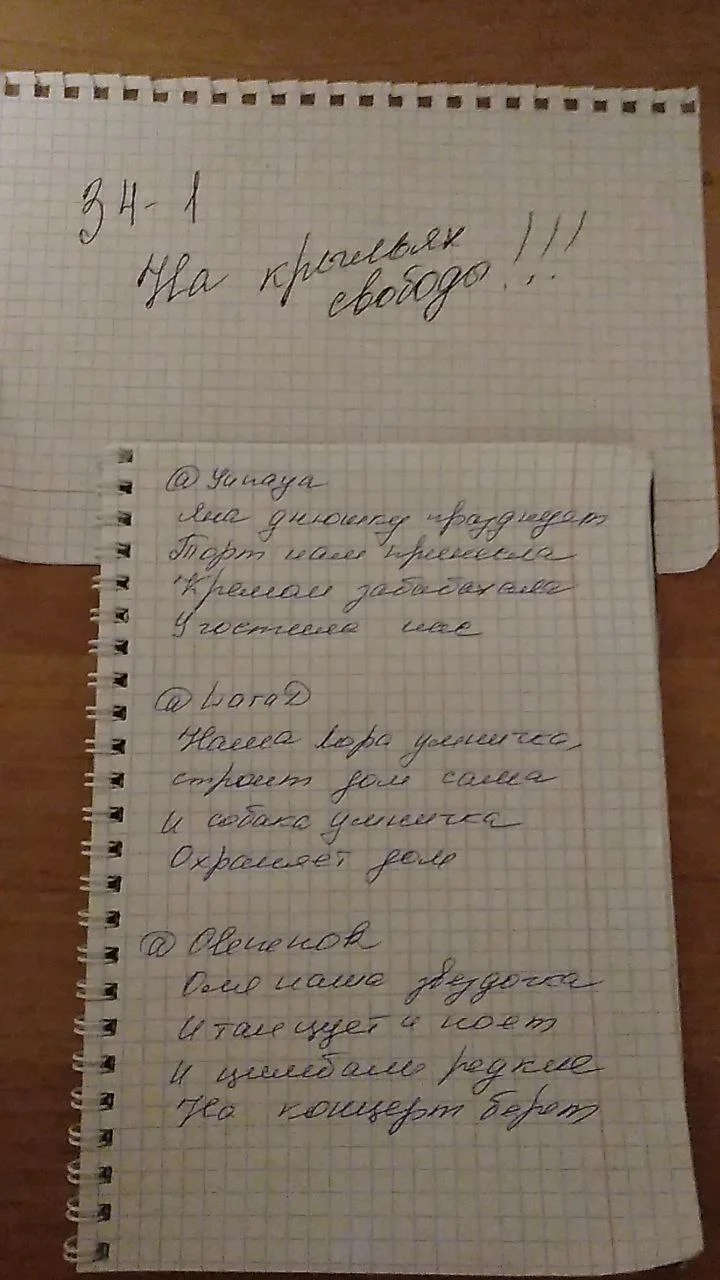 34-1
На крыльях
свободы!!!
@Yunaya
Яна днюшку празднует
Торт нам принесла
Кремом забабахала
Угостила нас
@LaraD
Наша Лора умничка,
строит дом сама
И собака умничка
Охраняет дом
@Овененок
Оля наша звездочка
И танцует и поет
И цимбалы редкие
На концерт берет